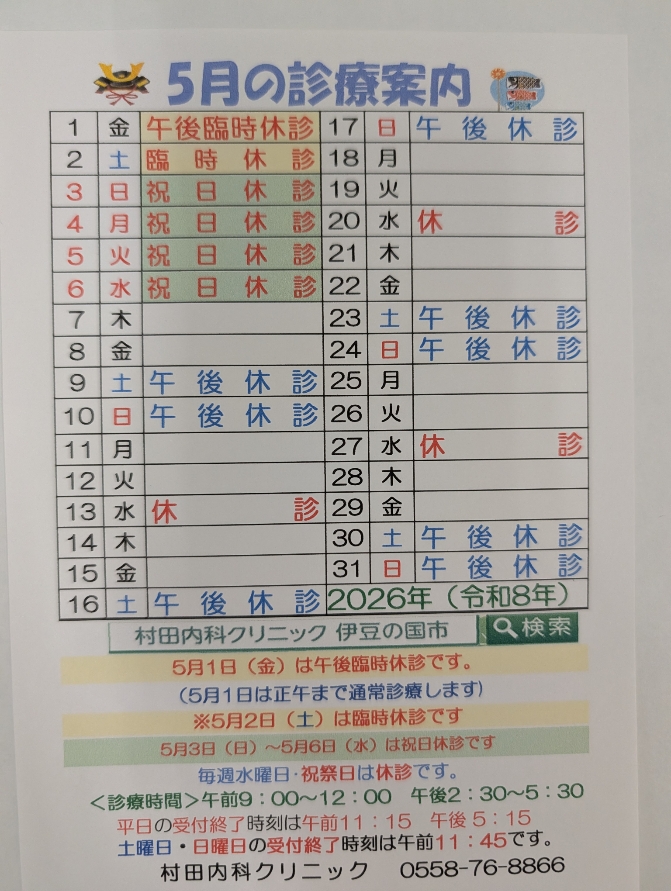 5月の診療案内
1 金 午後臨時休診
2 土 臨時休診
3 日 祝日休診
4 月 祝日休診
5 火 祝日休診
6 水 祝日休診
7 木
8 金
9 土 午後休診
10 日 午後休診
11 月
12 火
13 水 休診
14 木
15 金
16 土 午後休診
17 日 午後休診
18 月
19 火
20 水 休診
21 木
22 金
23 土 午後休診
24 日 午後休診
25 月
26 火
27 水 休診
28 木
29 金
30 土 午後休診
31 日 午後休診
2026年（令和8年）
村田内科クリニック 伊豆の国市 検索
5月1日（金）は午後臨時休診です。
（5月1日は正午まで通常診療します）
※5月2日（土）は臨時休診です
5月3日（日）～5月6日（水）は祝日休診です
毎週水曜日・祝祭日は休診です。
＜診療時間＞午前9：00～12：00 午後2：30～5：30
平日の受付終了時刻は午前11：15 午後5：15
土曜日・日曜日の受付終了時刻は午前11：45です。
村田内科クリニック 0558-76-8866